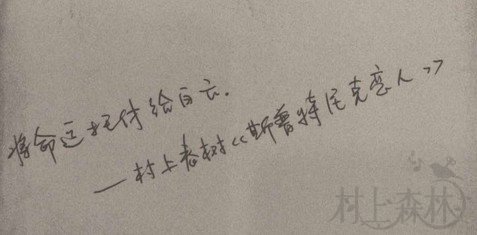 将命运托付给白云.
—村上春树《斯普特尼克恋人》
村上森林